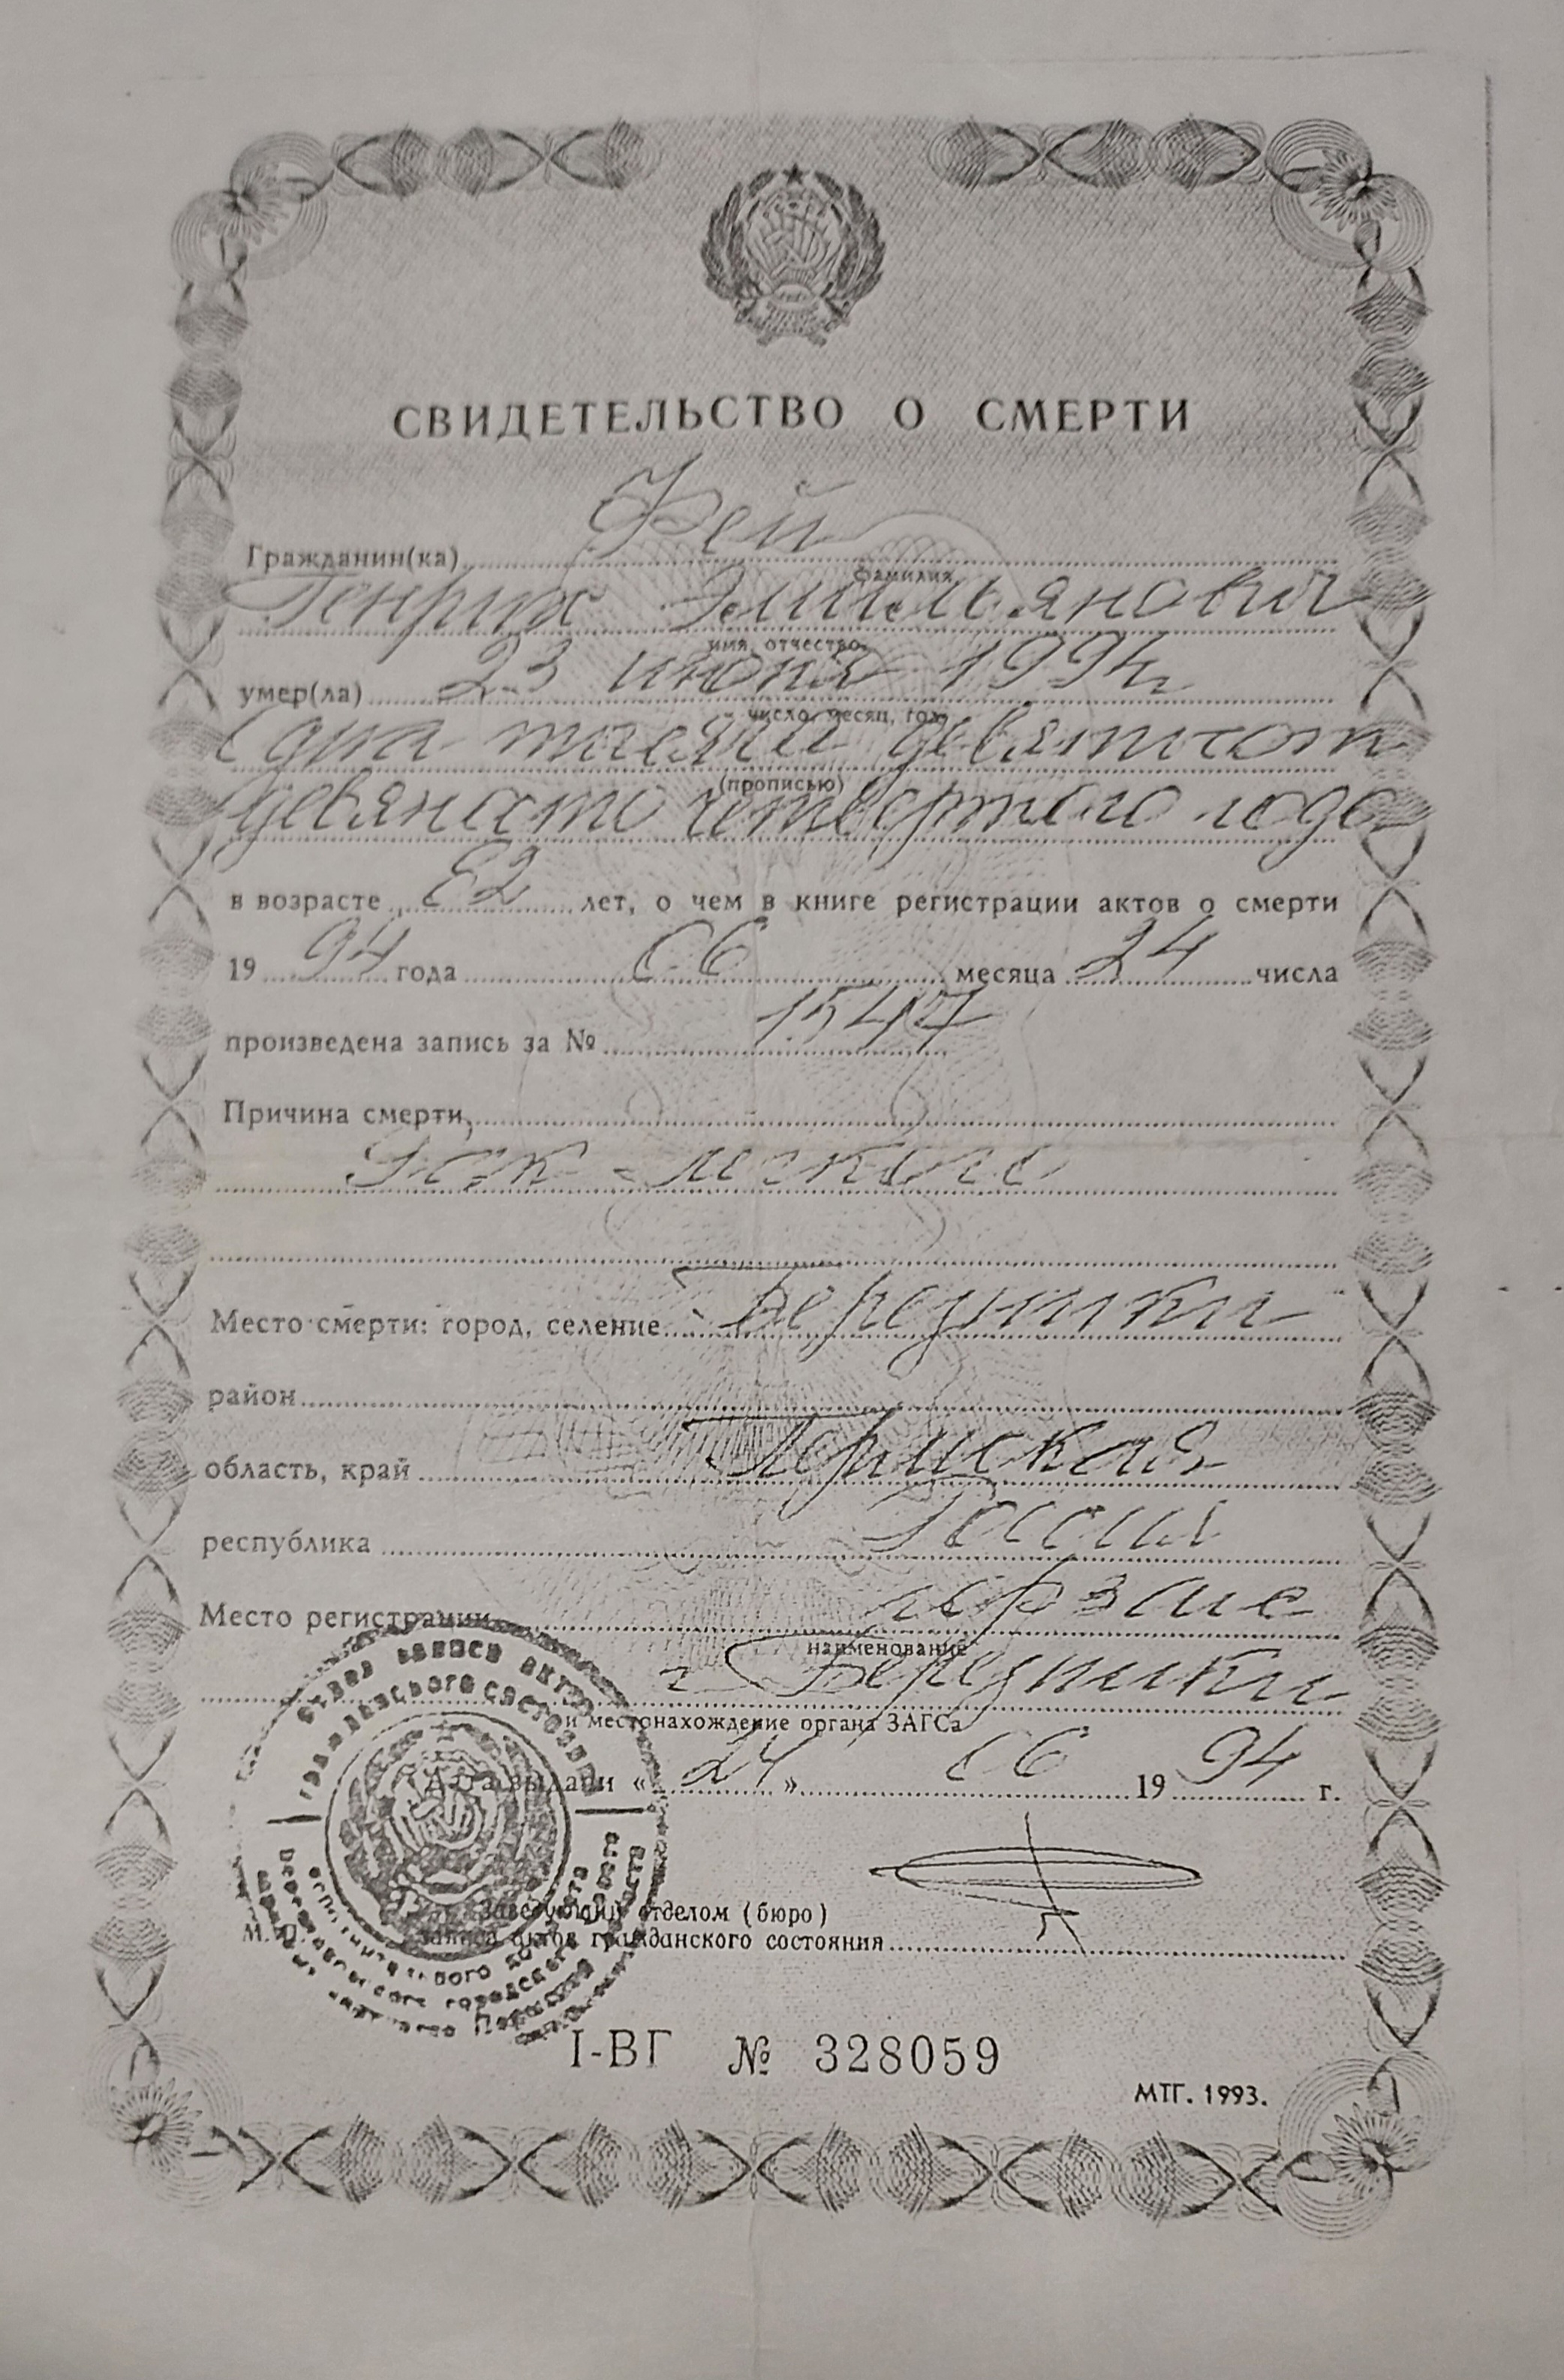 СВИДЕТЕЛЬСТВО О СМЕРТИ
Гражданин(ка) Фей
фамилия
Генрих Эмильянович
имя, отчество
умер(ла) 23 июня 1994г
число, месяц, год
одна тысяча девятьсот
(прописью)
девяносто четвертого года
в возрасте 82 лет, о чем в книге регистрации актов о смерти
19 94 года 06 месяца 24 числа
произведена запись за № 1547
Причина смерти
Место смерти: город, селение Березники
район
область, край Пермская
республика Россия
Место регистрации горзагс
наименование
г Березники
и местонахождение органа ЗАГСа
Дата выдачи « 24 » 06 19 94 г.
М. П.
Заведующий отделом (бюро)
записи актов гражданского состояния
I-ВГ № 328059
МТГ. 1993.